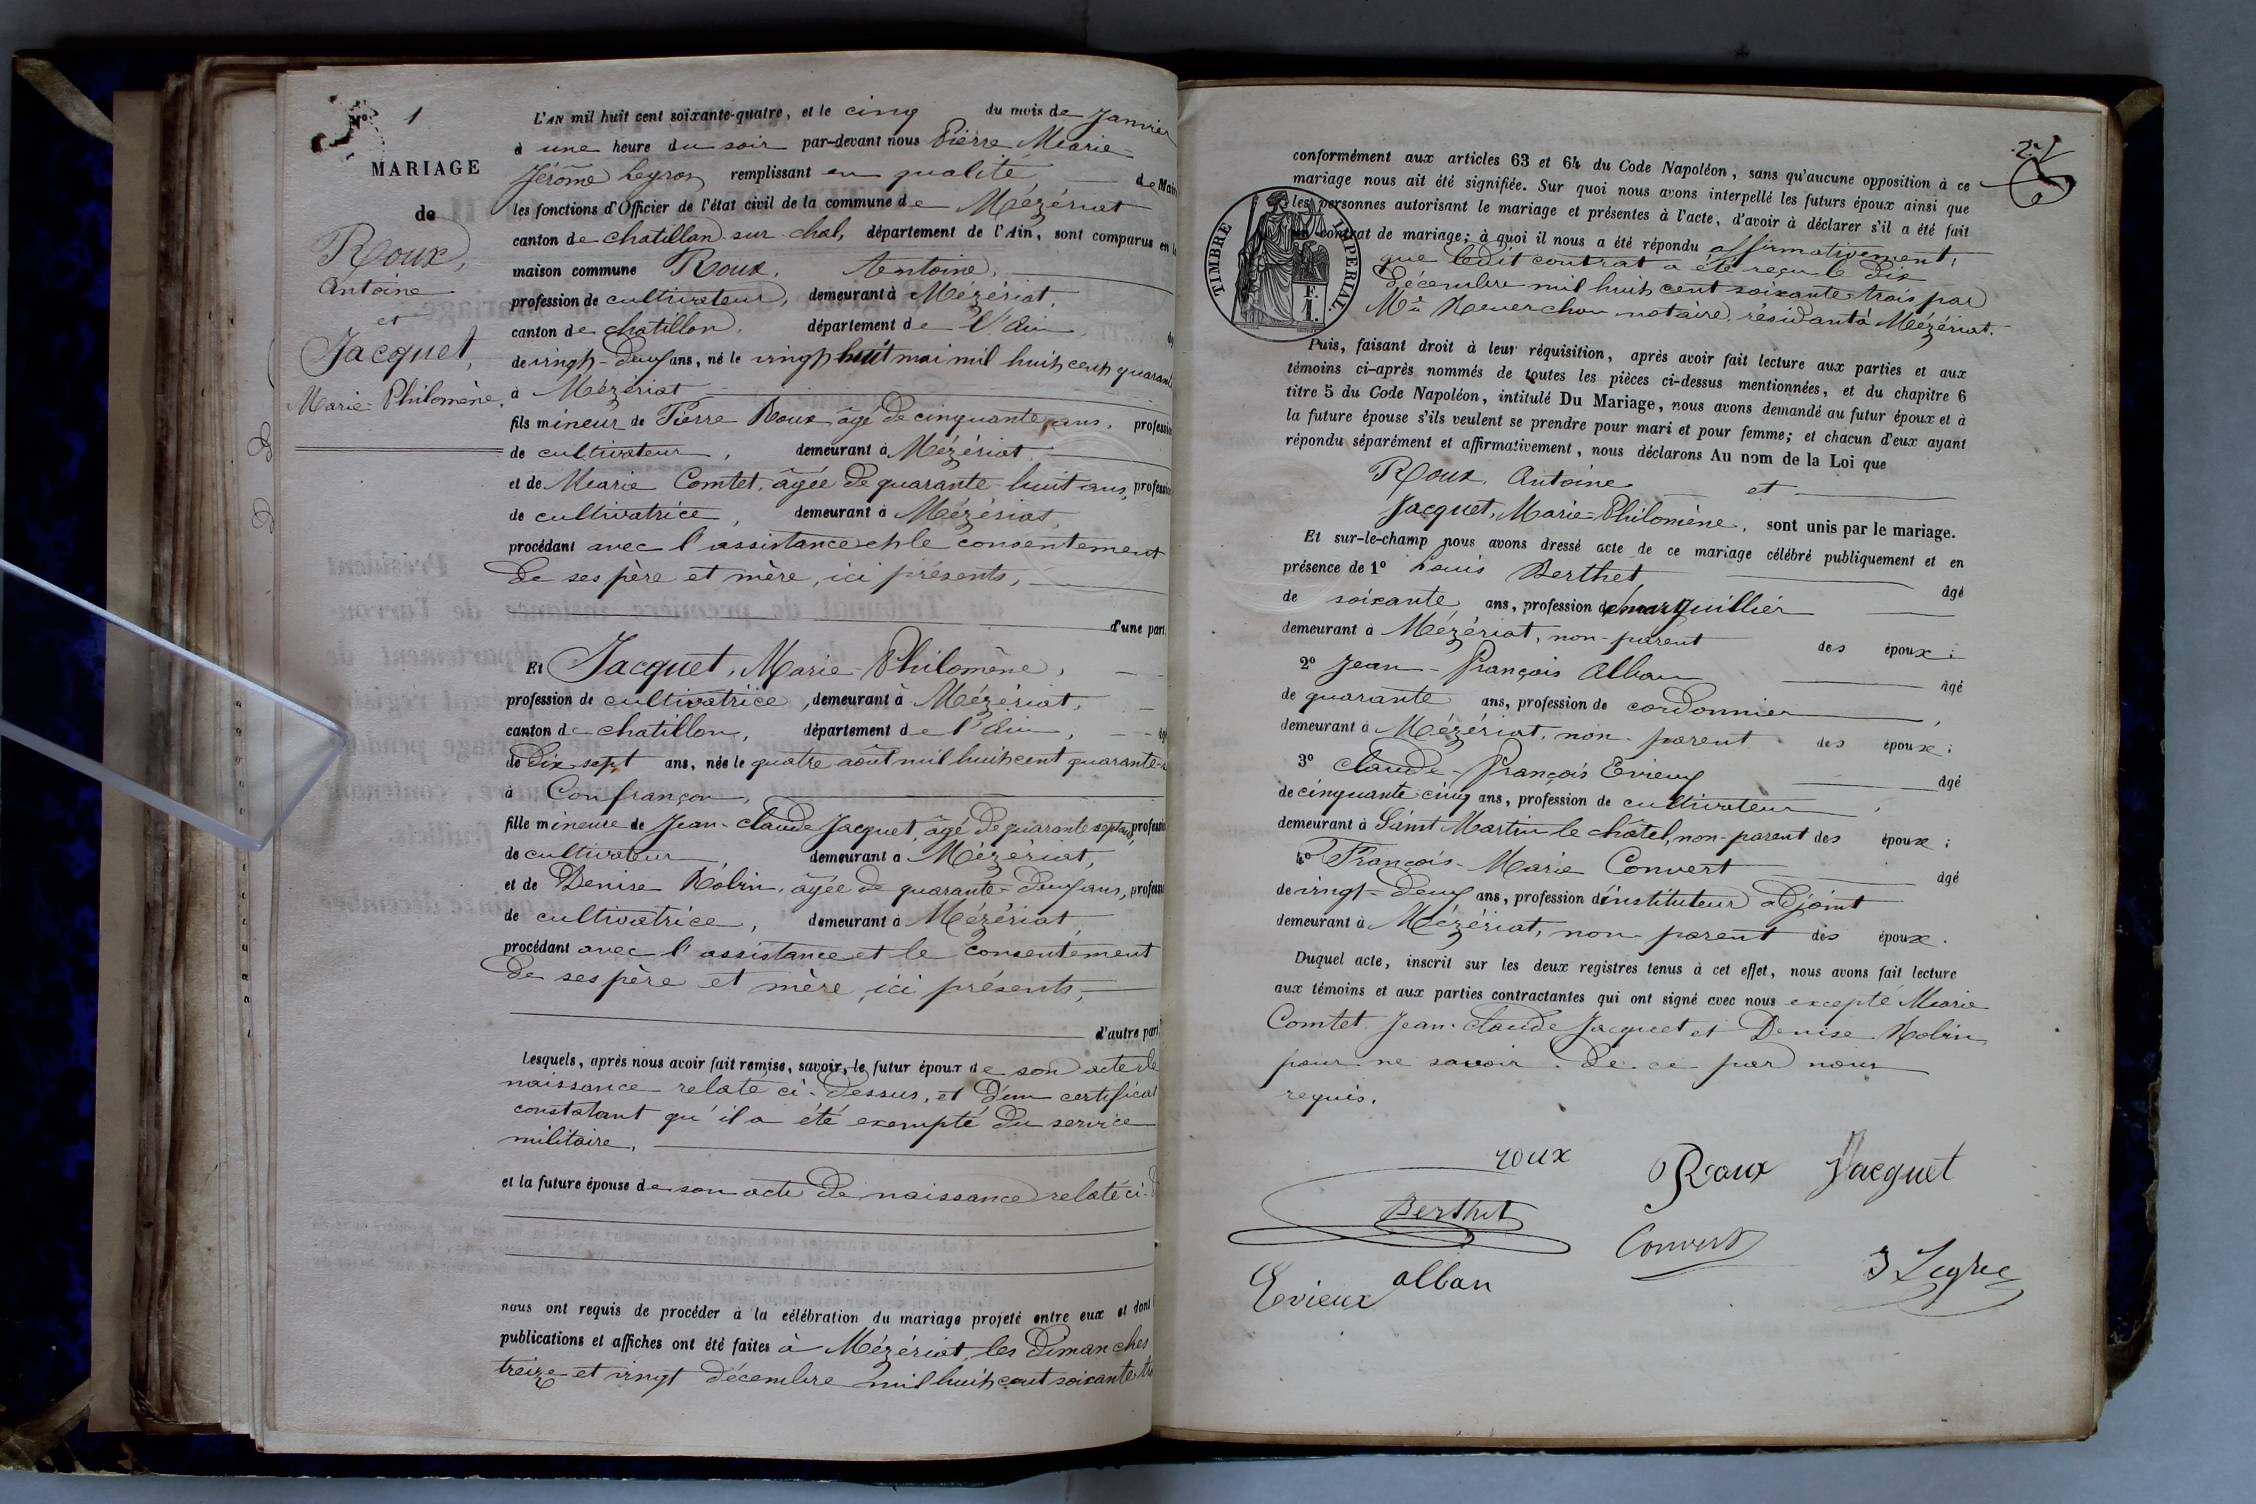 N° 1
MARIAGE
de
Roux,
Antoine
et
Jacquet,
Marie-Philomène.
L'AN mil huit cent soixante-quatre, et le cinq du mois de Janvier
à une heure du soir par-devant nous Pierre Marie-
Jérôme remplissant en qualité de Mair
les fonctions d'Officier de l'état civil de la commune de Mézériat
canton de chatillon-sur-chal, département de l'Ain, sont comparus en l
maison commune Roux, Antoine,
profession de cultivateur, demeurant à Mézériat,
canton de chatillon, département de l'Ain,
de vingt-deux ans, né le vingt huit mai mil huit cent quarant
à Mézériat
fils mineur de Pierre Roux âgé de cinquante ans, profession
de cultivateur, demeurant à Mézériat,
et de Marie Comtet, âgée de quarante-huit ans, profession
de cultivatrice, demeurant à Mézériat,
procédant avec l'assistance et le consentement
de ses père et mère, ici présents,
d'une part,
Et Jacquet, Marie-Philomène,
profession de cultivatrice, demeurant à Mézériat,
canton de chatillon, département de l'Ain, âgé
de dix sept ans, née le quatre août mil huit cent quarante-
à Confrançon,
fille mineure de Jean-Claude Jacquet, âgé de quarante sept ans, professio
de cultivateur, demeurant à Mézériat,
et de Denise Robin, âgée de quarante-deux ans, professi
de cultivatrice, demeurant à Mézériat,
procédant avec l'assistance et le consentement
de ses père et mère, ici présents,
d'autre part;
Lesquels, après nous avoir fait remise, savoir, le futur époux de son acte de
naissance relaté ci-dessus, et d'un certificat
constatant qu'il a été exempté du service
militaire,
et la future épouse de son acte de naissance relaté ci-d
nous ont requis de procéder à la célébration du mariage projeté entre eux et dont
publications et affiches ont été faites à Mézériat, les dimanches
treize et vingt décembre mil huit cent soixante tr
2e
conformément aux articles 63 et 64 du Code Napoléon, sans qu'aucune opposition à ce
mariage nous ait été signifiée. Sur quoi nous avons interpellé les futurs époux ainsi que
les personnes autorisant le mariage et présentes à l'acte, d'avoir à déclarer s'il a été fait
un contrat de mariage; à quoi il nous a été répondu affirmativement,
que ledit contrat a été reçu le dix
décembre mil huit cent soixante-trois par
Me notaire, résidant à Mézériat.
TIMBRE IMPERIAL.
1 F.
Puis, faisant droit à leur réquisition, après avoir fait lecture aux parties et aux
témoins ci-après nommés de toutes les pièces ci-dessus mentionnées, et du chapitre 6
titre 5 du Code Napoléon, intitulé Du Mariage, nous avons demandé au futur époux et à
la future épouse s'ils veulent se prendre pour mari et pour femme; et chacun d'eux ayant
répondu séparément et affirmativement, nous déclarons Au nom de la Loi que
Roux, Antoine et
Jacquet, Marie-Philomène, sont unis par le mariage.
Et sur-le-champ nous avons dressé acte de ce mariage célébré publiquement et en
présence de 1° Louis Berthet, âgé
de soixante ans, profession de marguillier
demeurant à Mézériat, non-parent des époux;
2° Jean-François Alban âgé
de quarante ans, profession de cordonnier,
demeurant à Mézériat, non-parent des époux;
3° Claude-François Evieux âgé
de cinquante cinq ans, profession de cultivateur,
demeurant à Saint Martin le châtel, non-parent des époux;
4° François-Marie Convert âgé
de vingt-deux ans, profession d'instituteur adjoint
demeurant à Mézériat, non-parent des époux.
Duquel acte, inscrit sur les deux registres tenus à cet effet, nous avons fait lecture
aux témoins et aux parties contractantes qui ont signé avec nous excepté Marie
Comtet, Jean-Claude Jacquet et Denise Robin,
pour ne savoir. de ce par nous
requis.
roux
Roux
Jacquet
Berthet
Convert
Evieux
alban